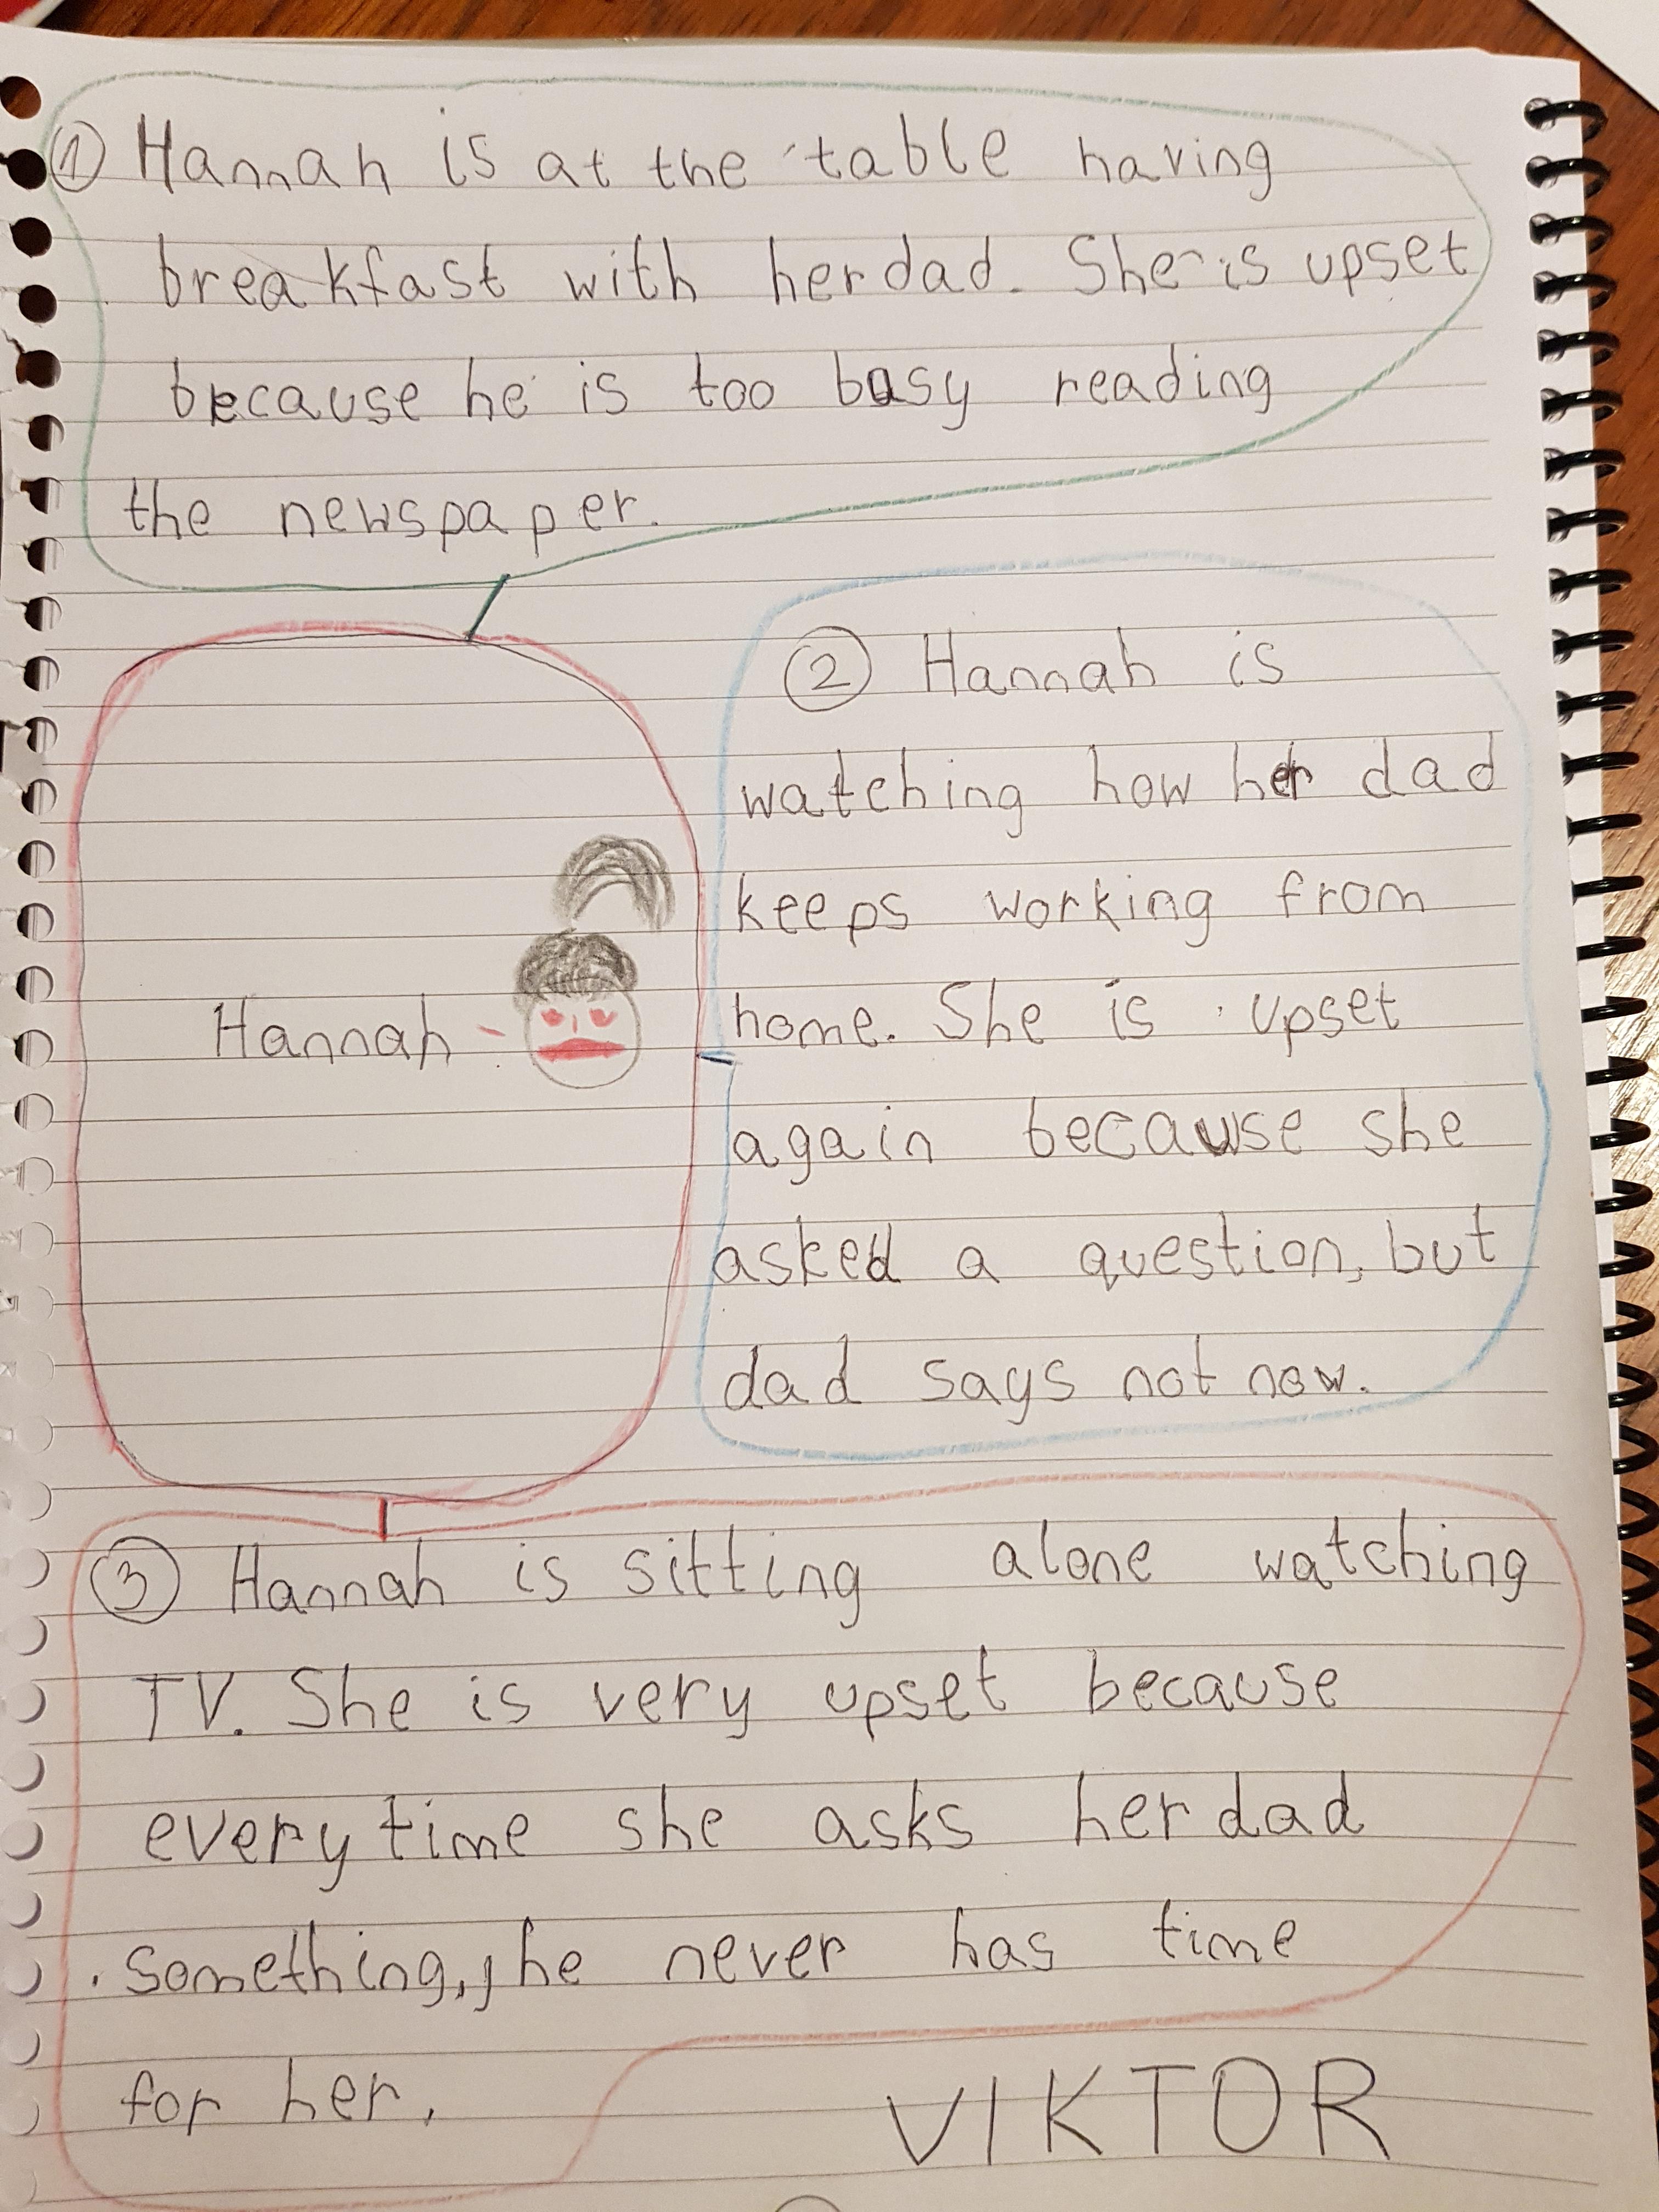 ① Hannah is at the table having
breakfast with her dad. She is upset
because he is too busy reading
the newspaper.
② Hannah is
watching how her dad
keeps working from
home. She is upset
again because she
asked a question, but
dad says not now.
Hannah -
③ Hannah is sitting alone watching
TV. She is very upset because
every time she asks her dad
something, he never has time
for her.
VIKTOR